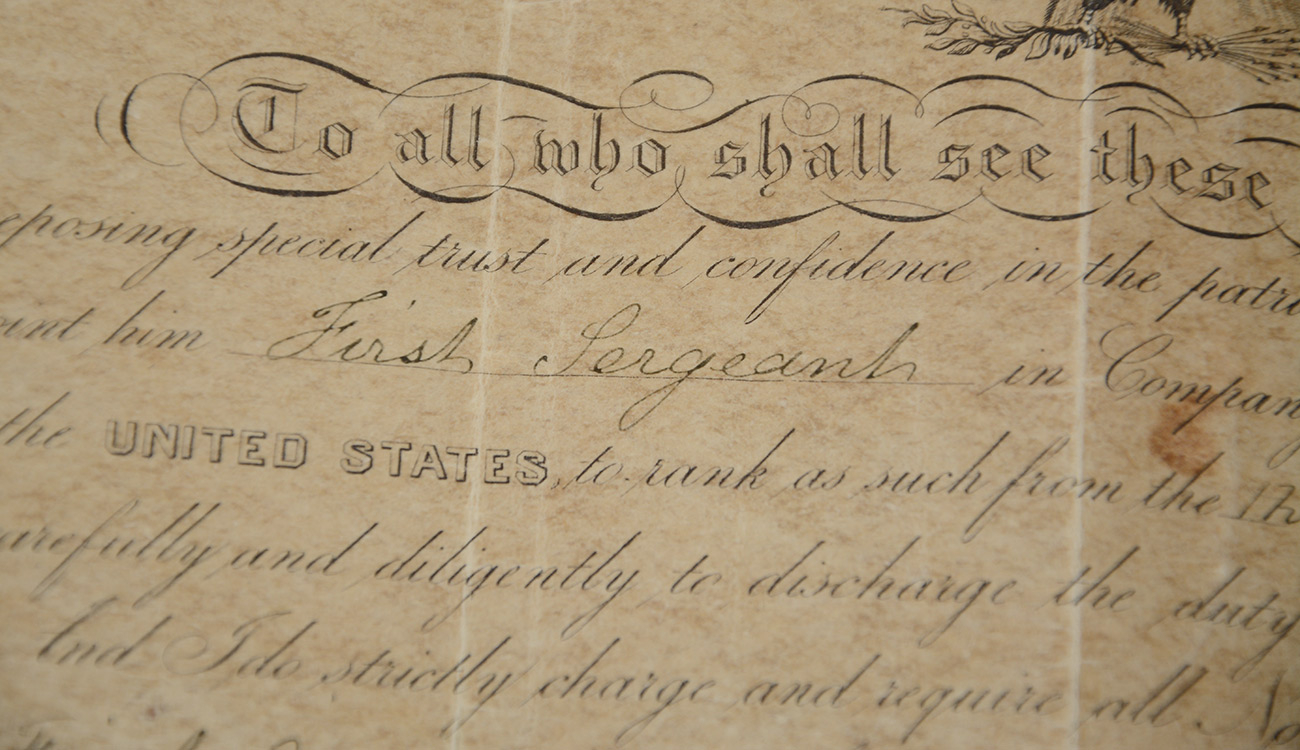 To all who shall see these
eposing special trust and confidence in the patri
oint him First Sergeant in Company
the UNITED STATES, to rank as such from the
arefully and diligently to discharge the duty
And I do strictly charge and require all No